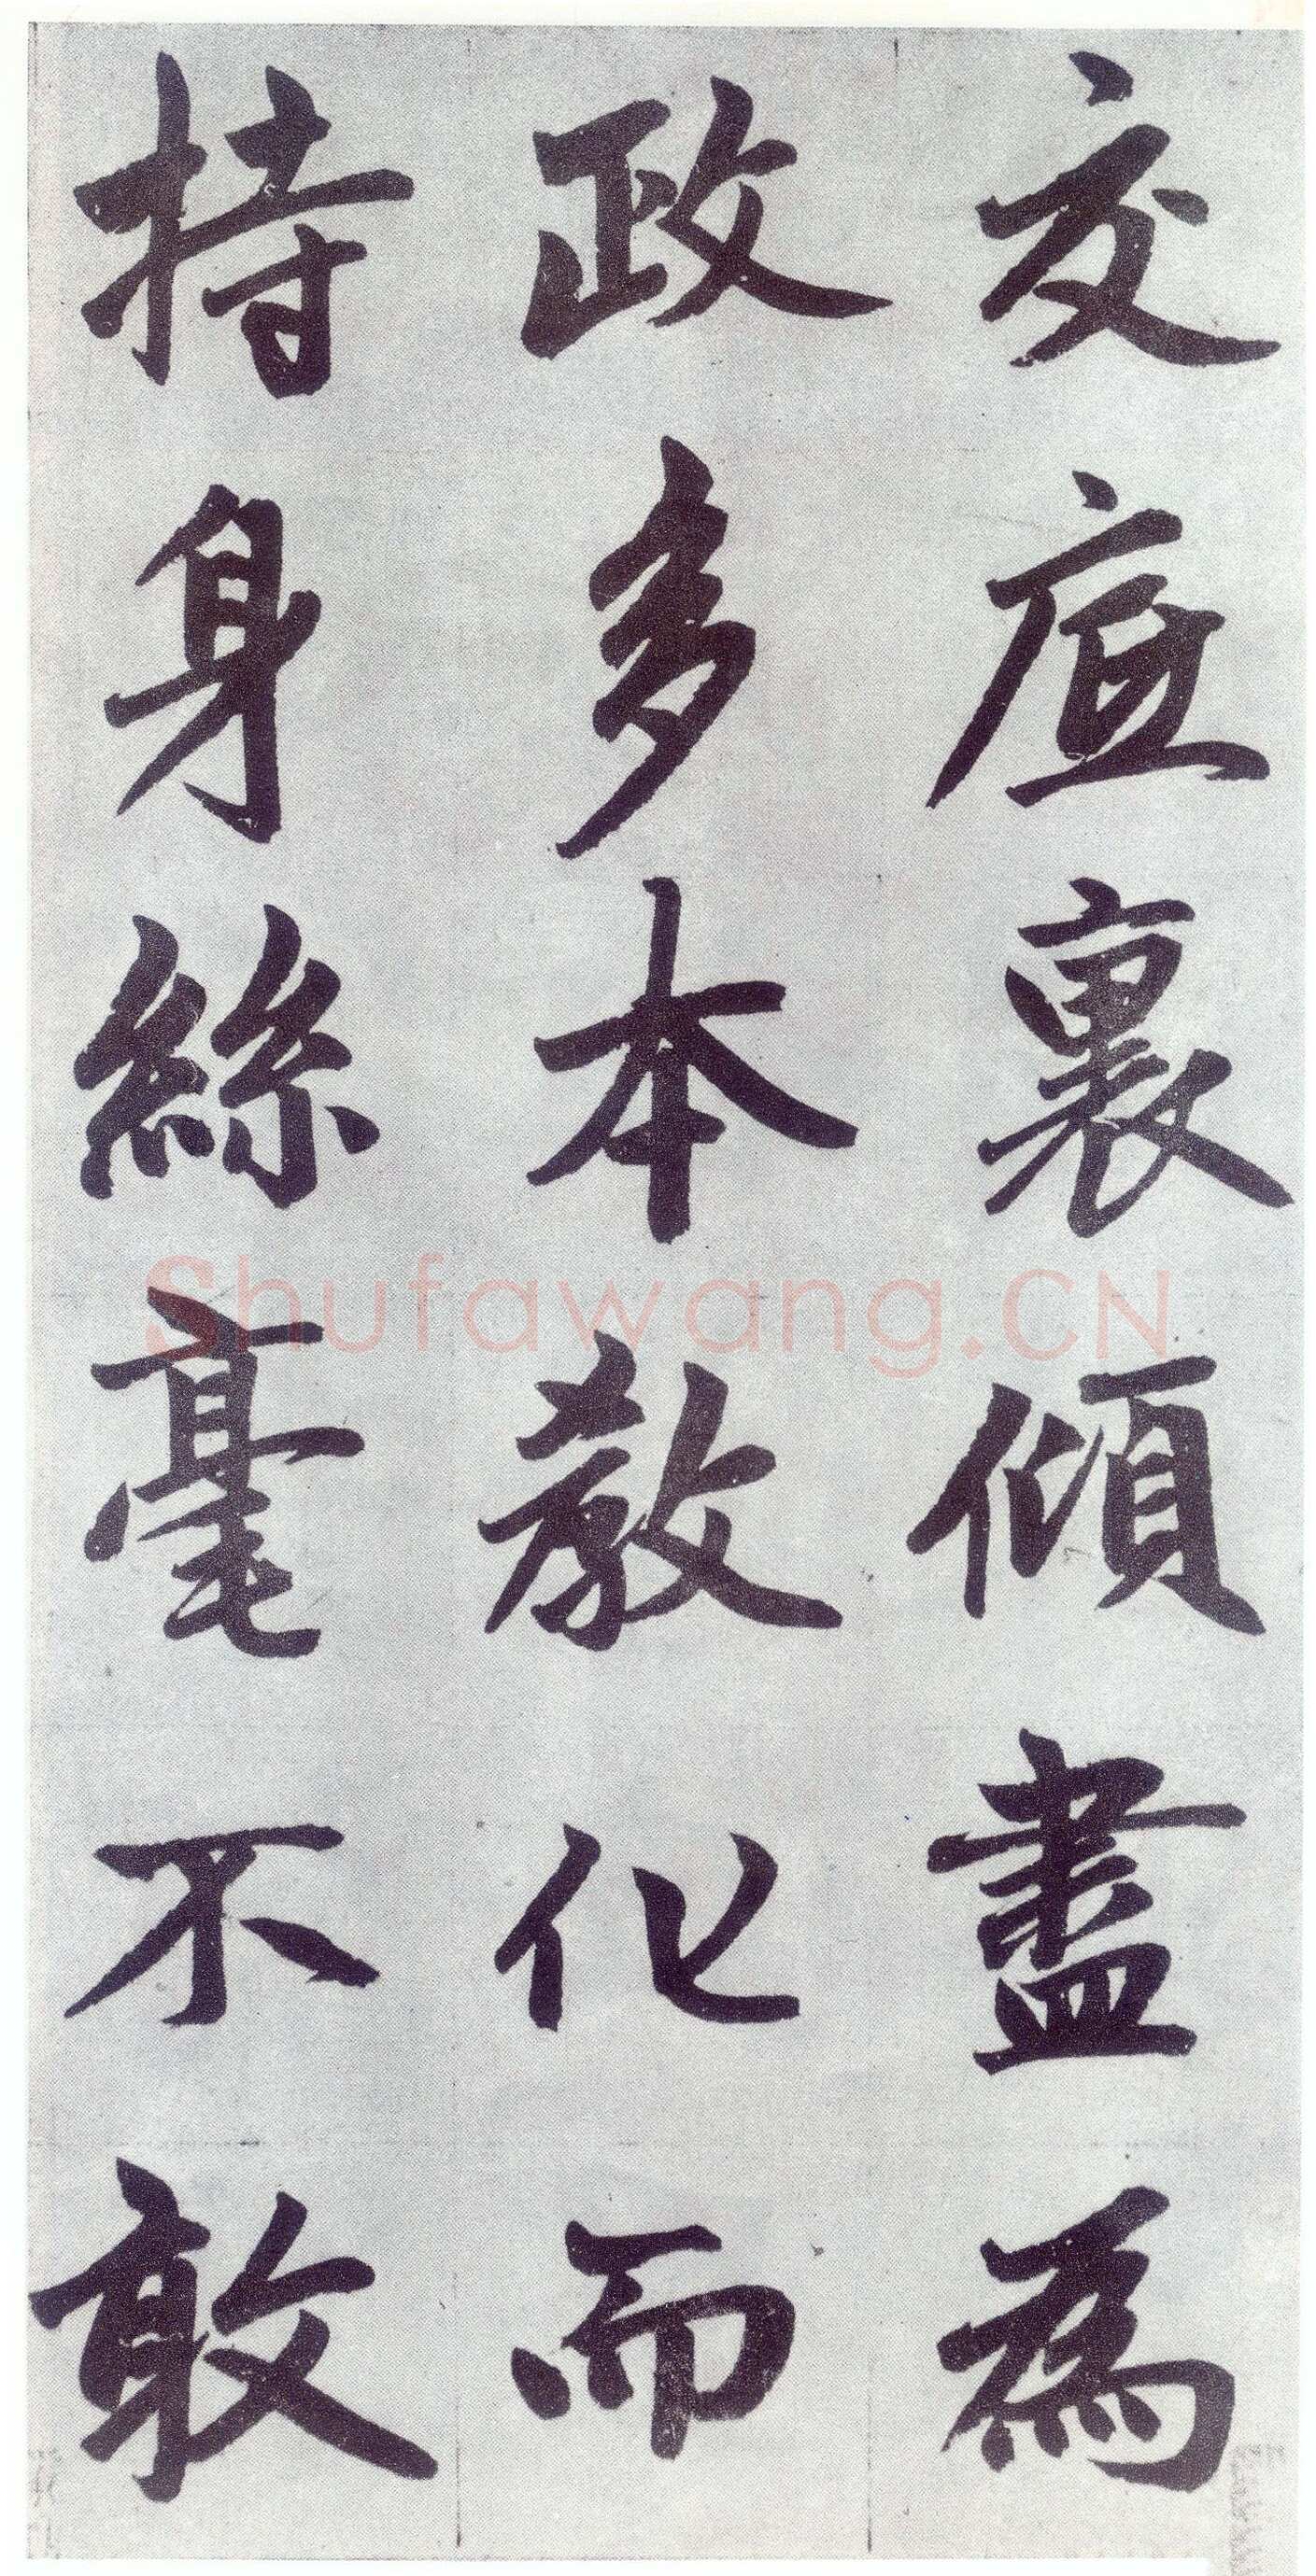 交症裏傾盡為
政多本教化而
持身絲毫不敢
Shufawang.CN